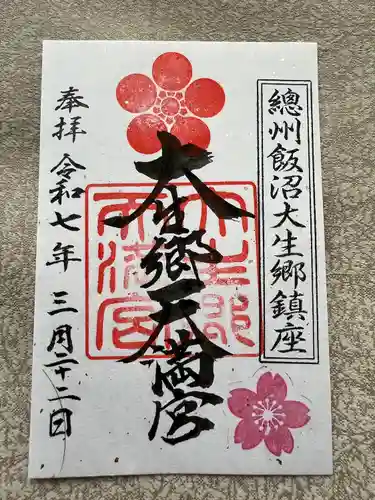 總州飯沼大生郷鎮座
大生郷天満宮
奉拝 令和七年 三月二十二日